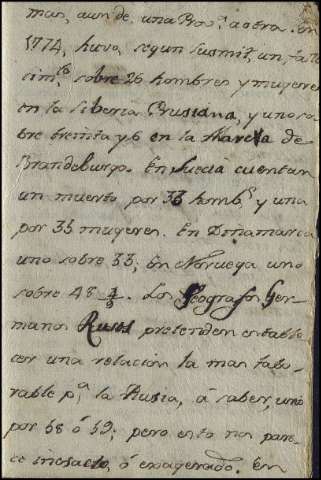 mas, aun de una Prov.ª a otra. En
1774, huvo segun Susmilt, un falle
cim.to sobre 26 hombres y mugeres
en la Siberia Prusiana, y uno so
bre treinta y 6 en la Marca de
Brandeburgo. En Suecia cuentan
un muerto por 33 homb.s y una
por 35 mugeres. En Dinamarca
uno sobre 33; en Noruega uno
sobre 48 . Los Geografos Ger
manos Rusos pretenden estable
cer una relación la mas fabo
rable p.ª la Rusia, á saber, uno
por 58 ó 59; pero esto nos pare
ce inesacto, ó exagerado. En